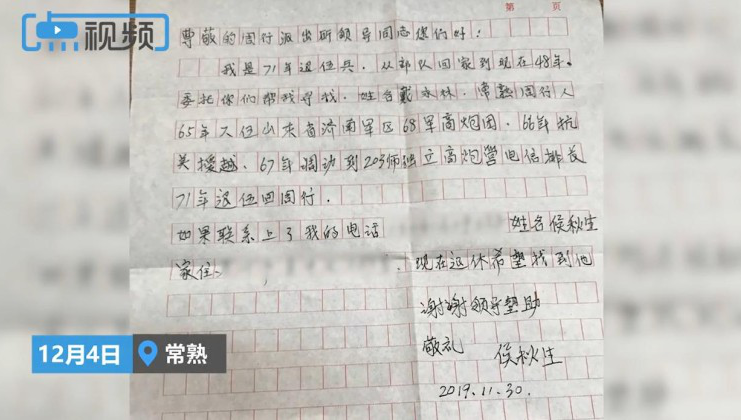 点视频
第 页
尊敬的周行派出所领导同志您们好：
我是71年退伍兵，从部队回家到现在48年。
委托你们帮我寻找，姓名戴永林，常熟周行人
65年入伍山东省济南军区68军高炮团，66年抗
美援越，67年调动到203师独立高炮营电信排长
71年退伍回周行.
如果联系上了我的电话 姓名侯秋生
家住、 ，现在退休希望找到他
谢谢领导帮助
敬礼 侯秋生
2019.11.30.
12月4日 常熟